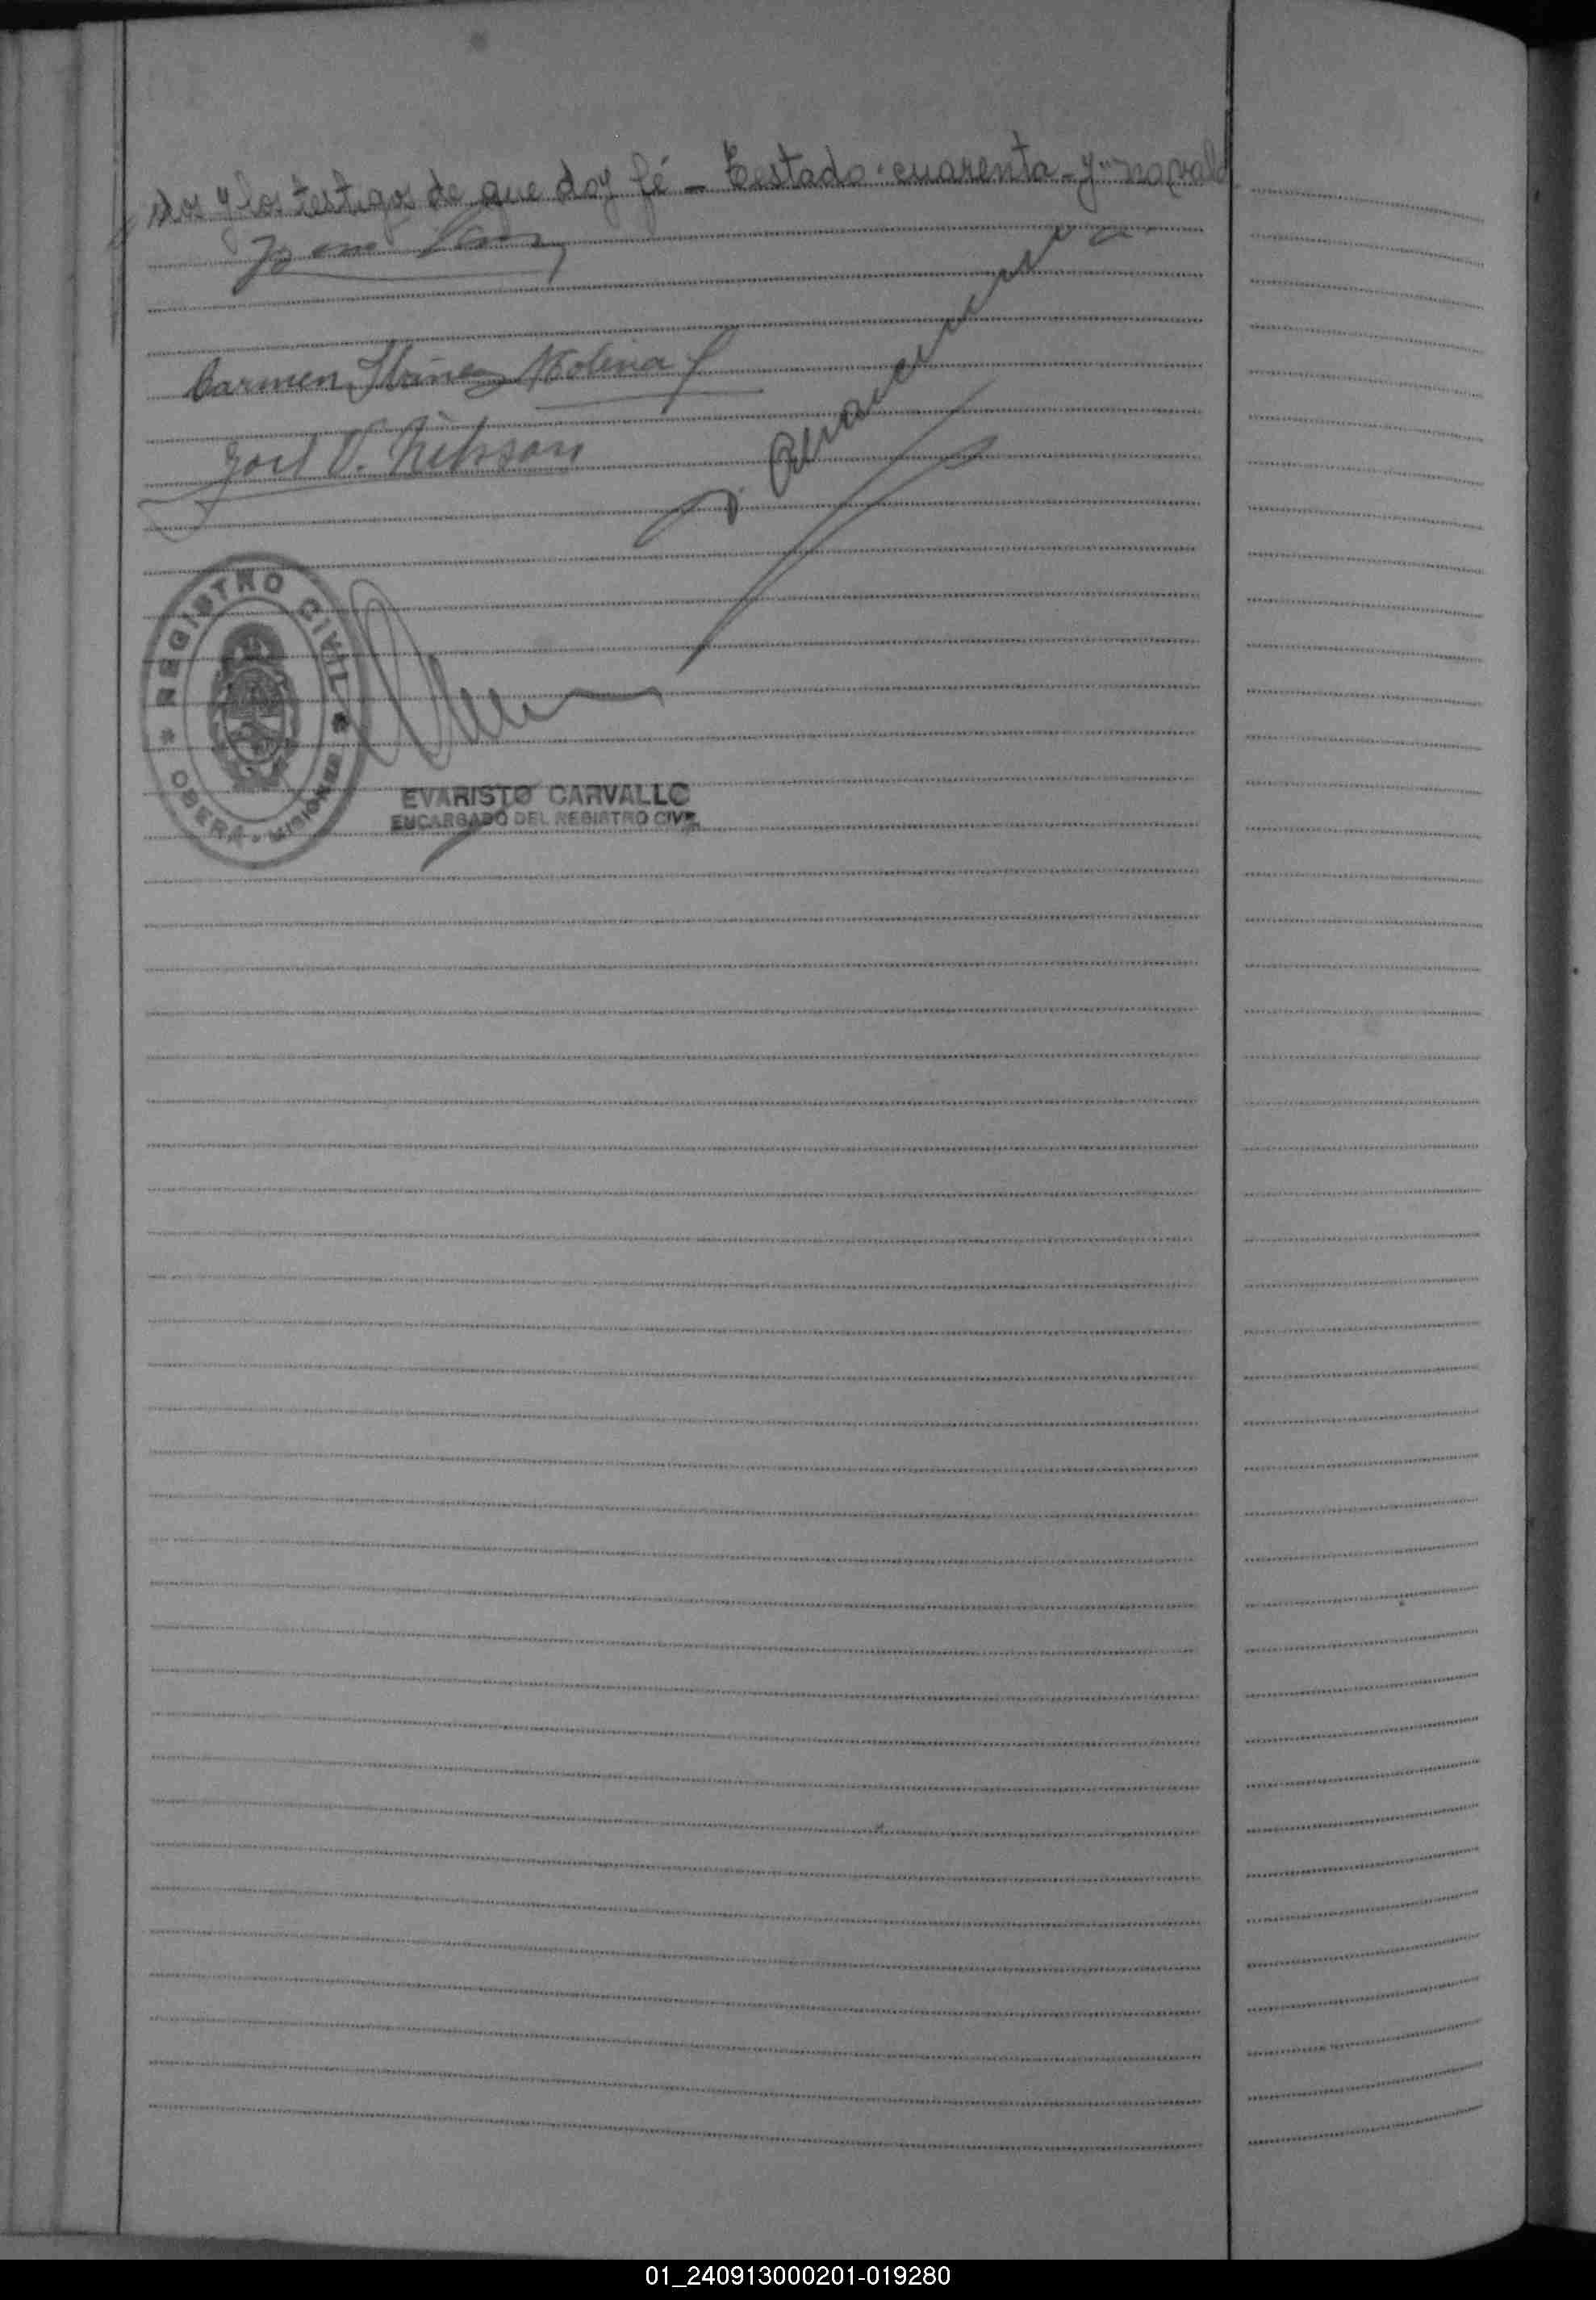 dos y los testigos de que doy fé – Testado: cuarenta - y" no vale
Carmen Ibáñez Molina
Joel V. Nilsson
REGISTRO CIVIL
OBERÁ - MISIONES
EVARISTO CARVALLO
ENCARGADO DEL REGISTRO CIVIL
01_240913000201-019280